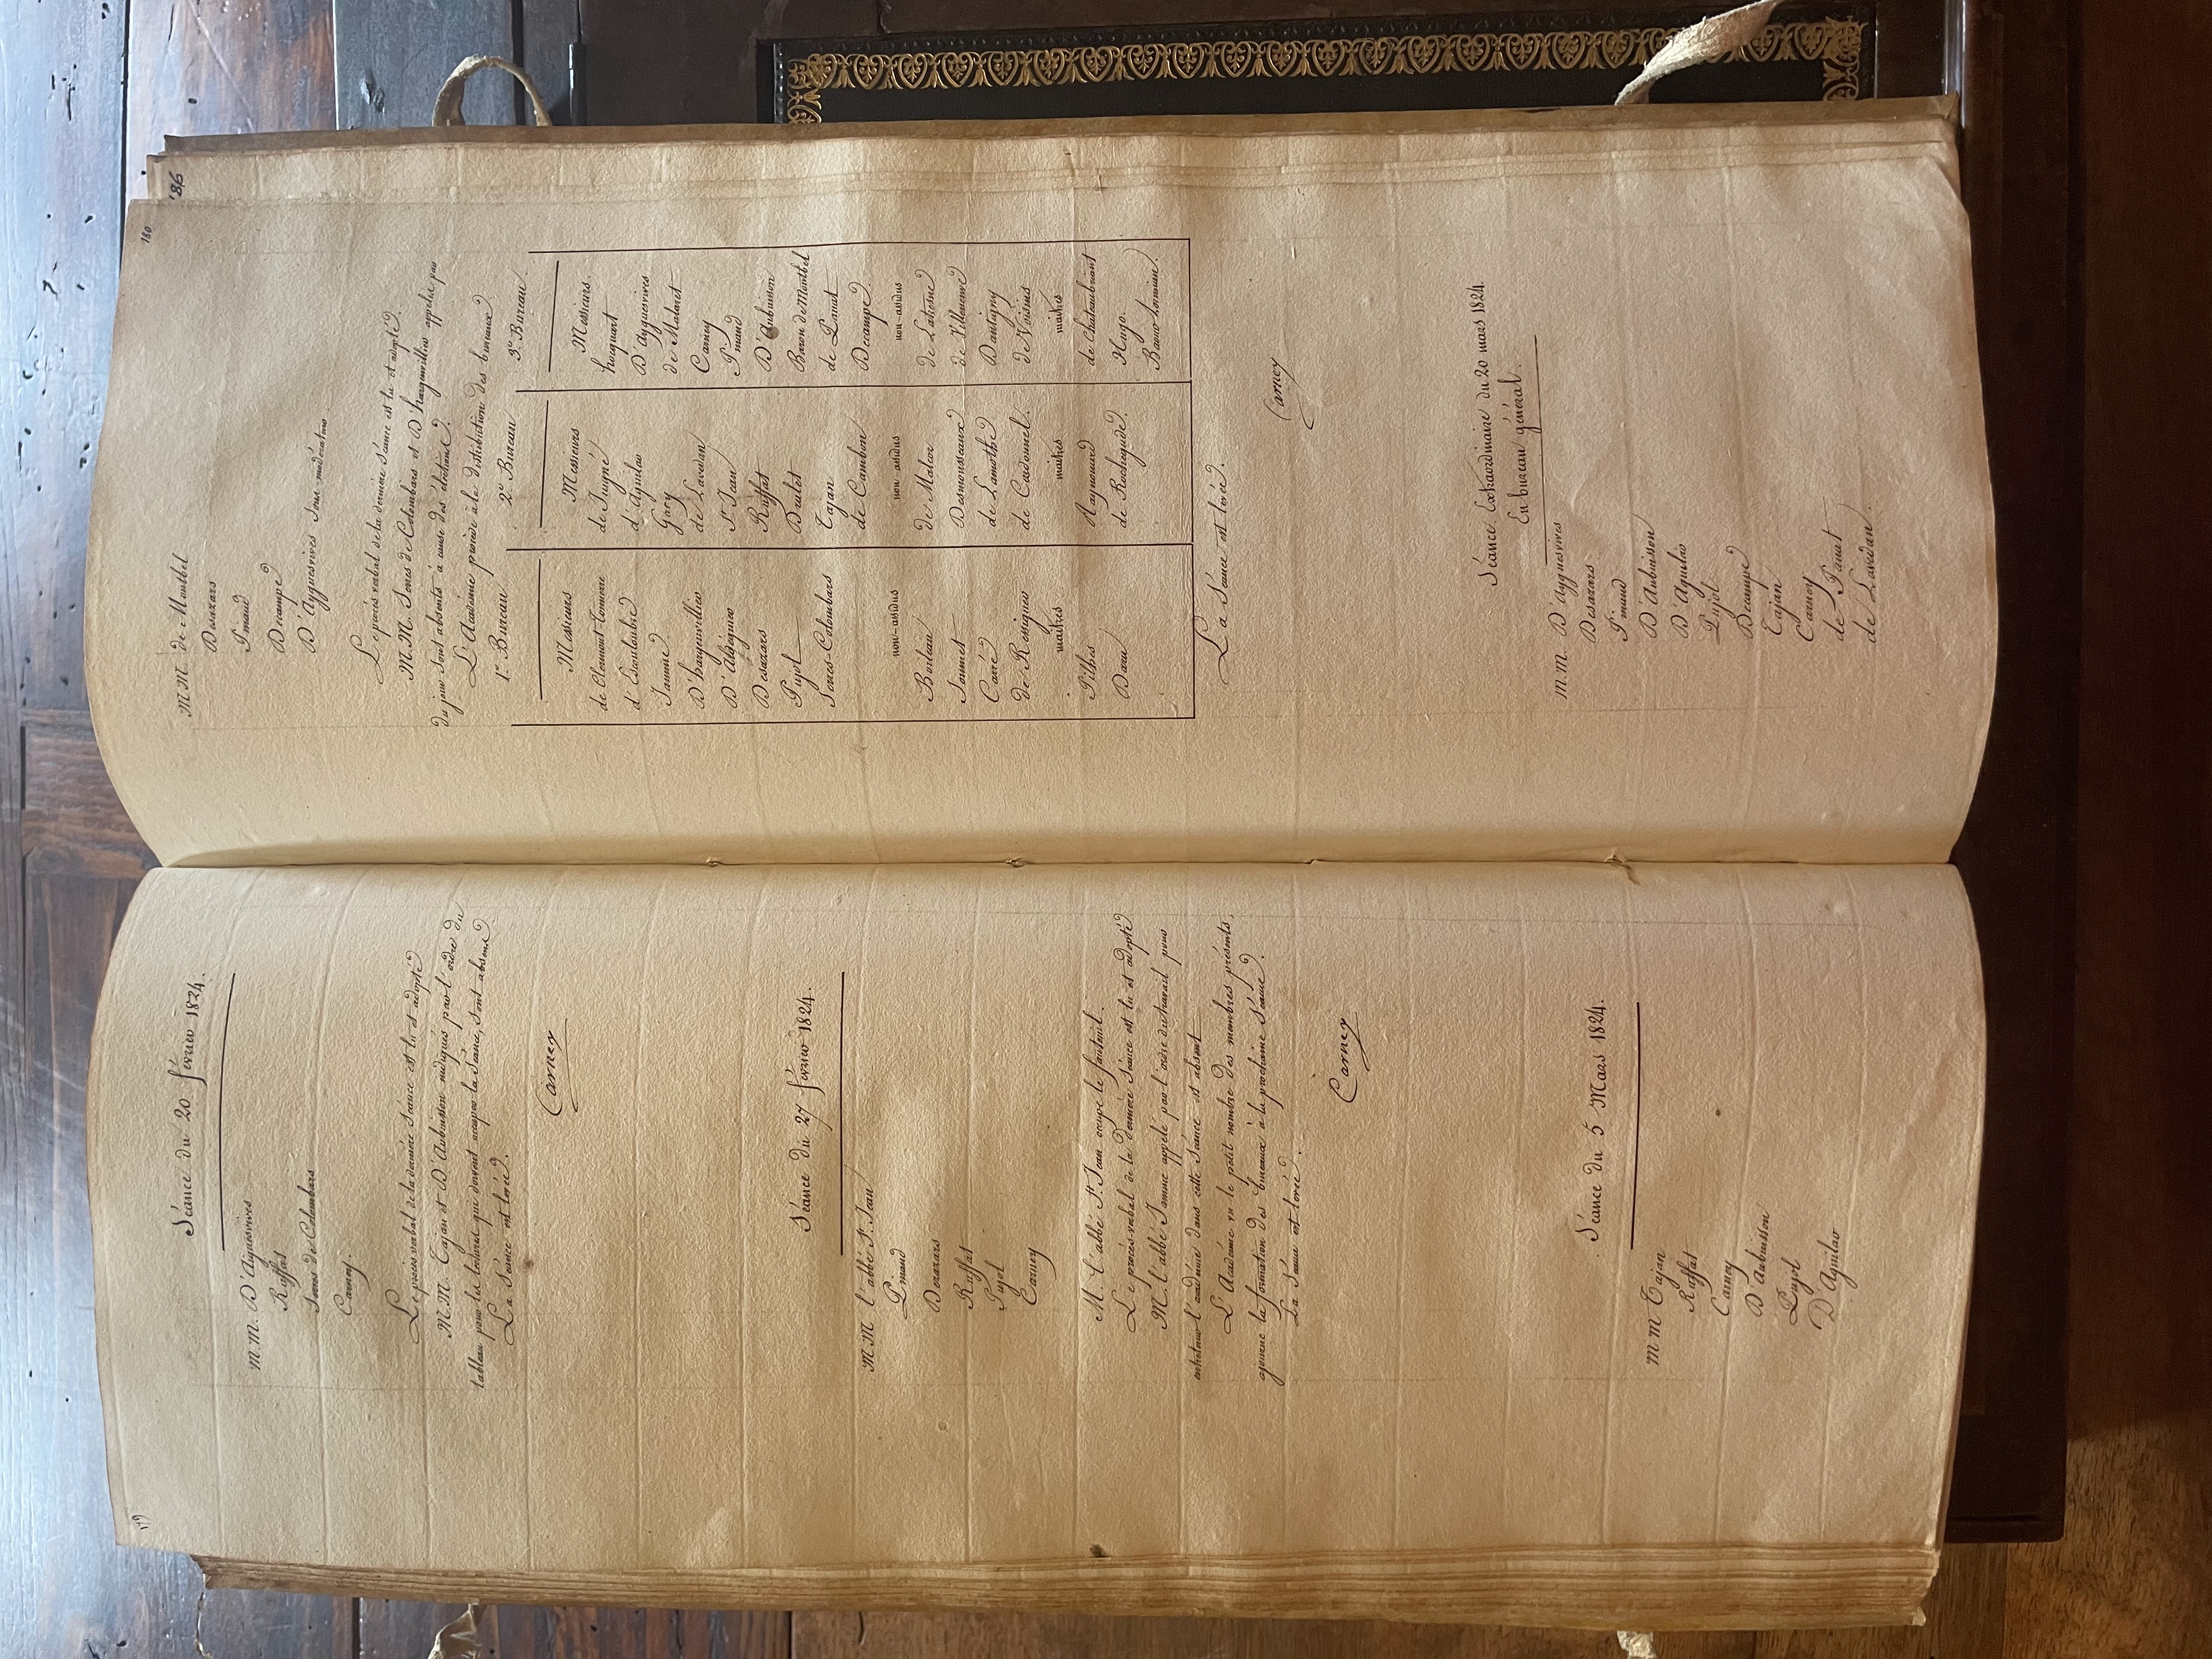 179
Séance du 20 février 1824.
M.M. D'Aiguesvives
Ruffat
Serres de Colombars
Carney.
Le procès verbal de la dernière Séance est lu et adopté
M.M. Tajan et D'Aubuisson indiqués par l'ordre du
tableau pour les lectures que doivent occuper la Séance, sont absens.
La Séance est levée.
Carney
Séance du 27 février 1824.
M.M. l'abbé St. Jean
Pinaud
Desazars
Ruffat
Pujol
Carney
M. l'abbé St. Jean occupe le fauteuil.
Le procès verbal de la dernière Séance est lu et adopté
M. l'abbé Jamme appelé par l'ordre du travail pour
entretenir l'académie dans cette Séance est absent
L'Académie vu le petit nombre des membres présents,
ajourne la formation des bureaux à la prochaine Séance.
La Séance est levée.
Carney
Séance du 5 Mars 1824.
M M Tajan
Ruffat
Carney
D'Aubuisson
Pujol
D'Aguilar
180
186
M M. de Montbel
Desazars
Pinaud
Decampe
D'Ayguesvives Sous modérateur
Le procès verbal de la dernière Séance est lu et adopté.
M.M. Serres de Colombars et D'hargenvillier appelés par
du jour sont absents à cause des élections.
L'Académie procède à la distribution des bureaux.
1er. Bureau 2e. Bureau 3e. Bureau
Messieurs Messieurs Messieurs.
de Clermont-Tonnerre de Juigné hocquart
d'Escouloubre d'Aguilar D'Ayguesvives
Jamme Gary de Malaret
D'hargenvillier de Lavedan Carney
D'Aldéguier St. Jean Pinaud
Desazars Ruffat D'Aubuisson
Pujol Doulet Baron de Montbel
Serres-Colombars Tajan de Panat
de Cambon Decampe
non-assidus non-assidus non-assidus
Boileau de Malcor de Latresne
Soumet Desmousseaux de Villeneuve
Carré de Lamothe Dantigny
de Rességuier de Cardonnel de Voisins
maitres maitres maitres
Pithes Raynouard de Chateaubriant
Daru de Rochegude Hugo.
Baour-Lormian
La Séance est levée.
Carney
Séance Extraordinaire du 20 mars 1824.
En bureau général.
M.M. D'Ayguesvives
Desazars
Pinaud
D'Aubuisson
D'Aguilar
Pujol
Decampe
Tajan
Carney
de Panat
de Lavedan.